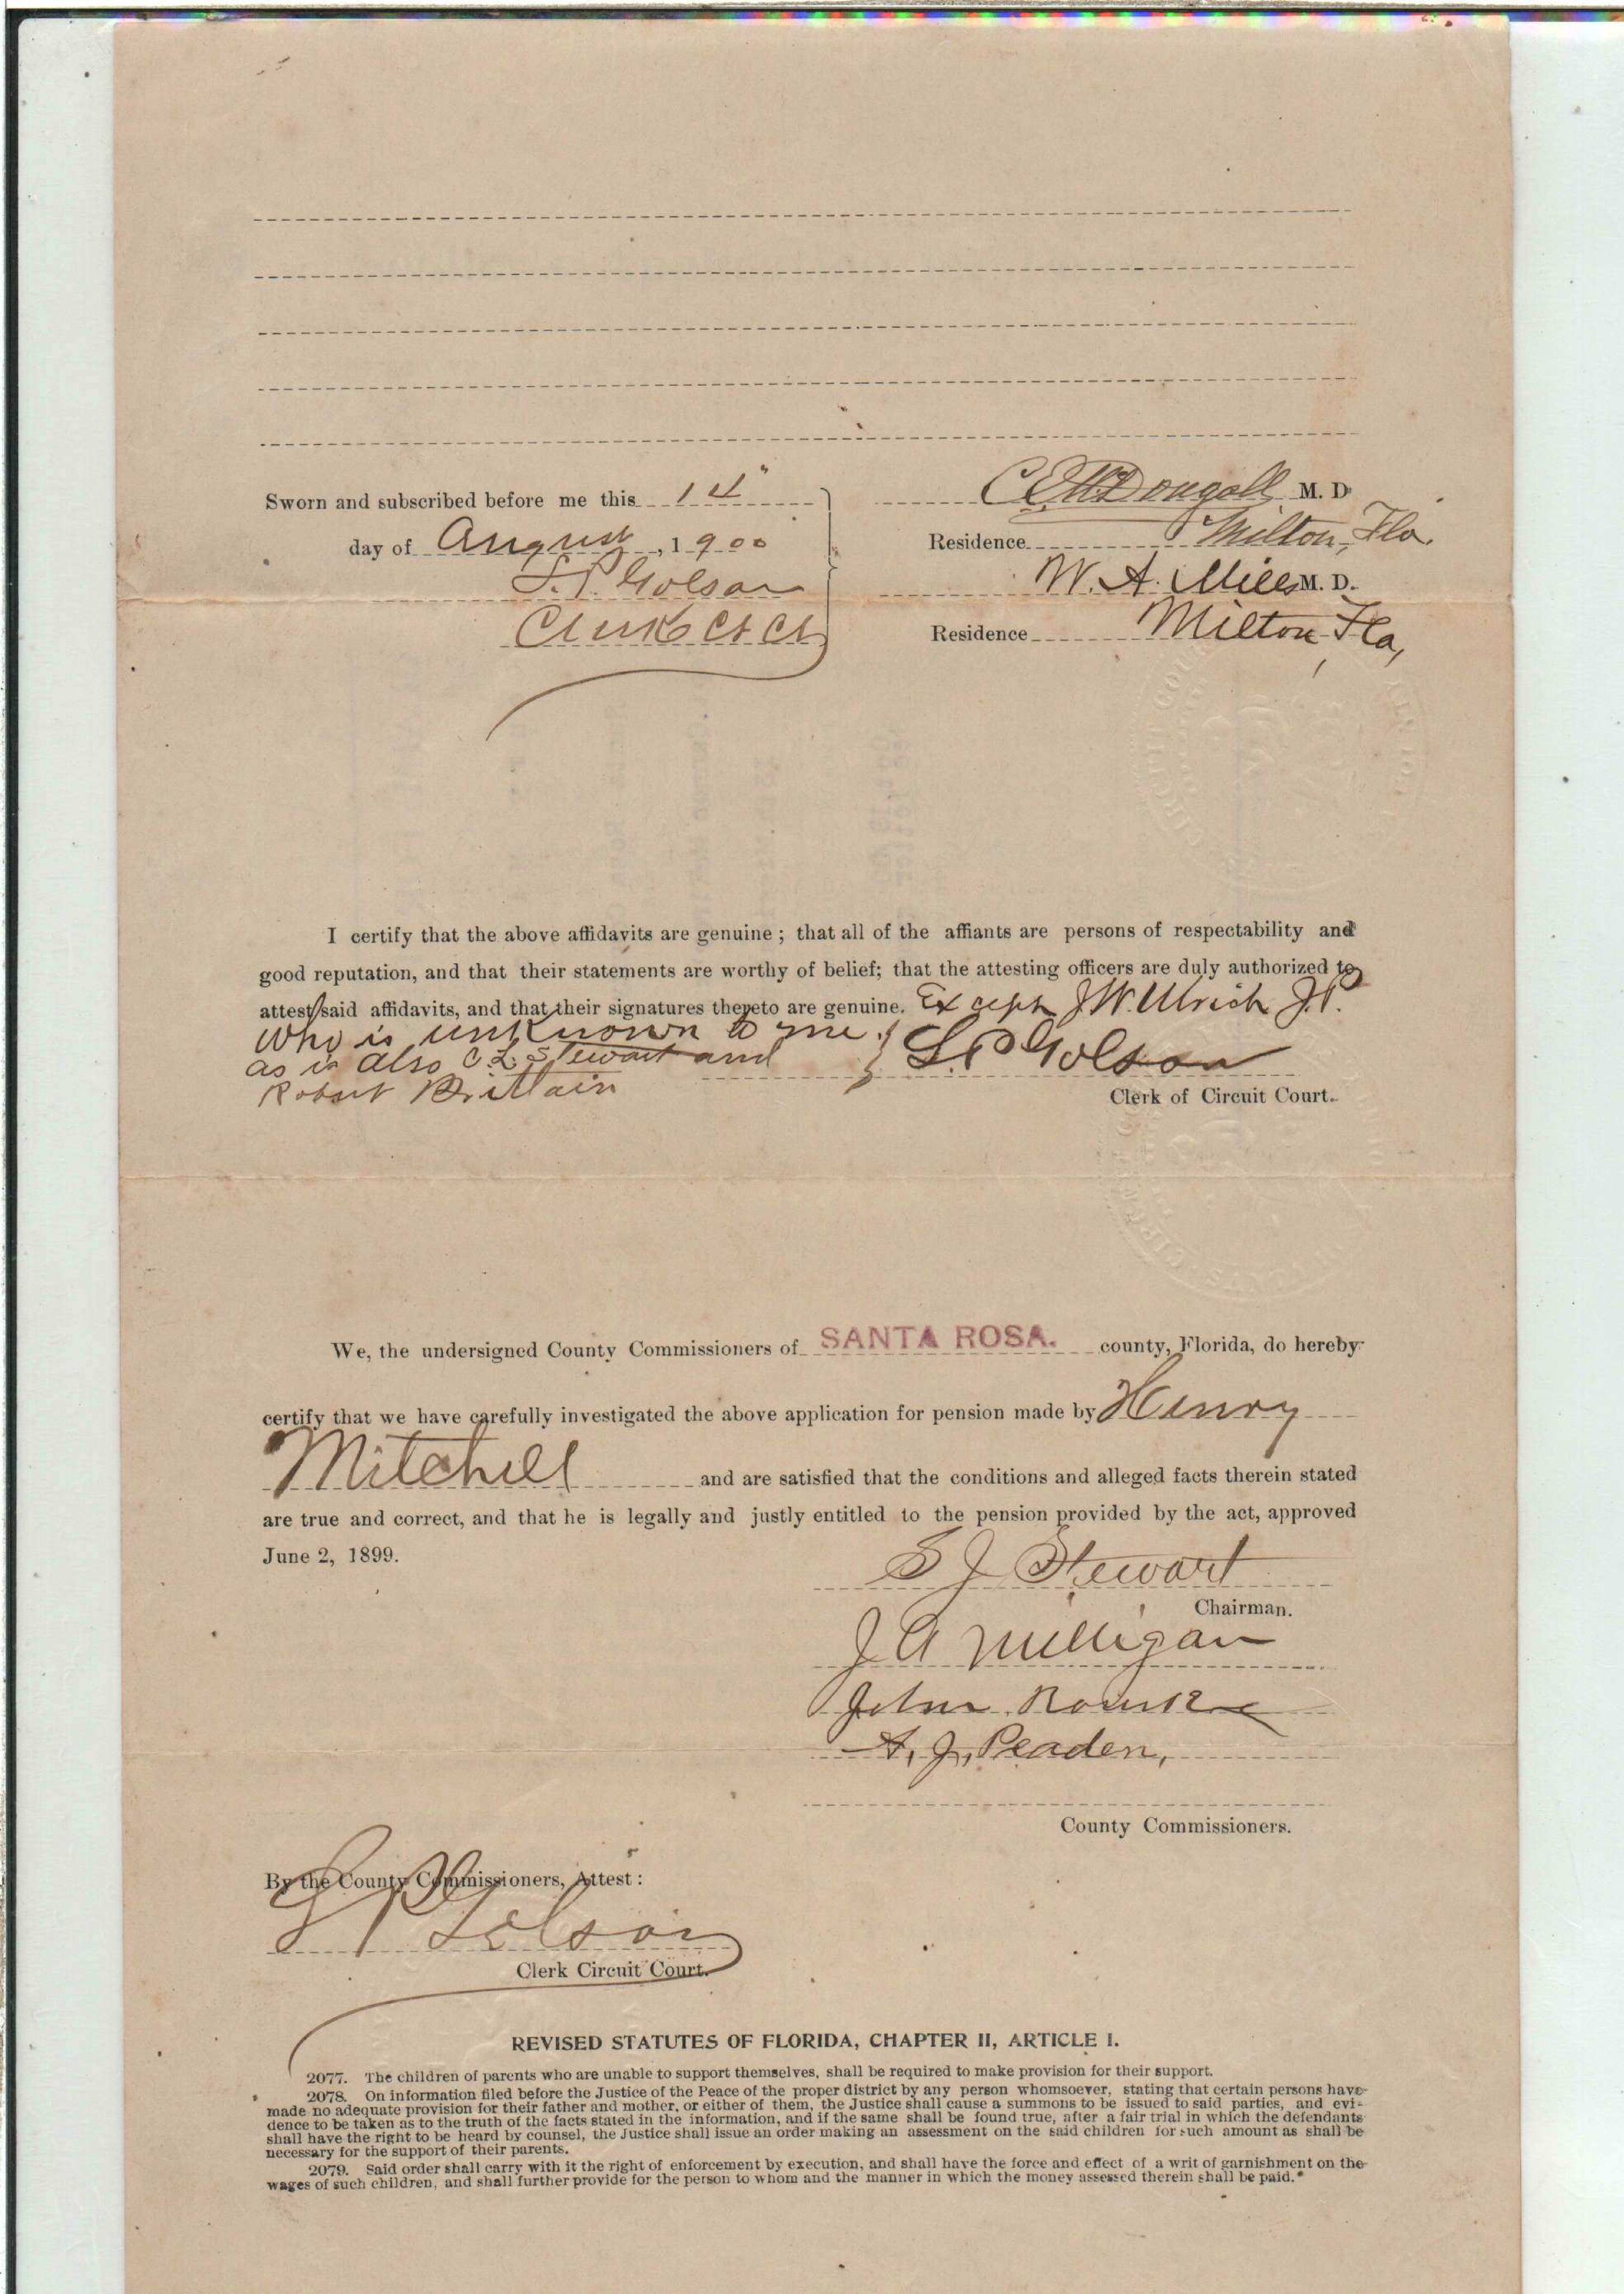 Sworn and subscribed before me this
day of August, 1900
S. P. Golson
Clerk Ct Ct
C E McDougall M. D
Residence Milton, Fla.
W. A. Mills M. D.
Residence Milton Fla,
I certify that the above affidavits are genuine; that all of the affiants are persons of respectability and
good reputation, and that their statements are worthy of belief; that the attesting officers are duly authorized to
attest said affidavits, and that their signatures thereto are genuine. Except J W. Ulrich J. P.
who is unknown to me
as is also C. L. Stewart and
Robert Brittain
S. P. Golson
Clerk of Circuit Court.
We, the undersigned County Commissioners of SANTA ROSA. county, Florida, do hereby
certify that we have carefully investigated the above application for pension made by Henry
Mitchell and are satisfied that the conditions and alleged facts therein stated
are true and correct, and that he is legally and justly entitled to the pension provided by the act, approved
June 2, 1899.
S J Stewart
Chairman.
J A Milligan
John Rourke
A. J. Peaden,
County Commissioners.
By the County Commissioners, Attest:
S P Golson
Clerk Circuit Court.
REVISED STATUTES OF FLORIDA, CHAPTER II, ARTICLE I.
2077. The children of parents who are unable to support themselves, shall be required to make provision for their support.
2078. On information filed before the Justice of the Peace of the proper district by any person whomsoever, stating that certain persons have
made no adequate provision for their father and mother, or either of them, the Justice shall cause a summons to be issued to said parties, and evi-
dence to be taken as to the truth of the facts stated in the information, and if the same shall be found true, after a fair trial in which the defendants
shall have the right to be heard by counsel, the Justice shall issue an order making an assessment on the said children for such amount as shall be
necessary for the support of their parents.
2079. Said order shall carry with it the right of enforcement by execution, and shall have the force and effect of a writ of garnishment on the
wages of such children, and shall further provide for the person to whom and the manner in which the money assessed therein shall be paid.